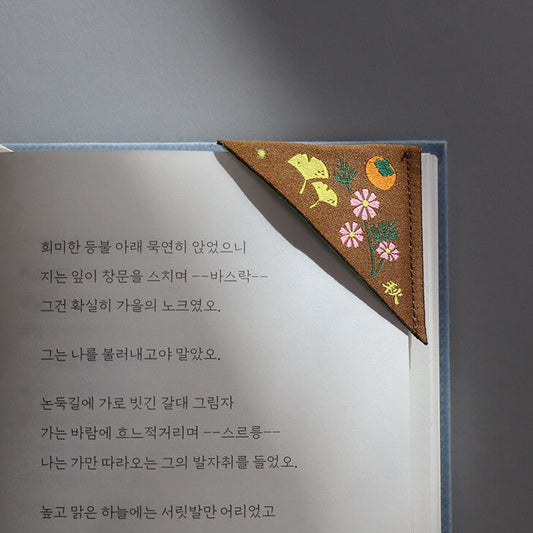 희미한 등불 아래 묵연히 앉았으니
지는 잎이 창문을 스치며 --바스락--
그건 확실히 가을의 노크였오.
그는 나를 불러내고야 말았오.
논둑길에 가로 빗긴 갈대 그림자
가는 바람에 흐느적거리며 --스르릉--
나는 가만 따라오는 그의 발자취를 들었오.
높고 맑은 하늘에는 서릿발만 어리었고
秋